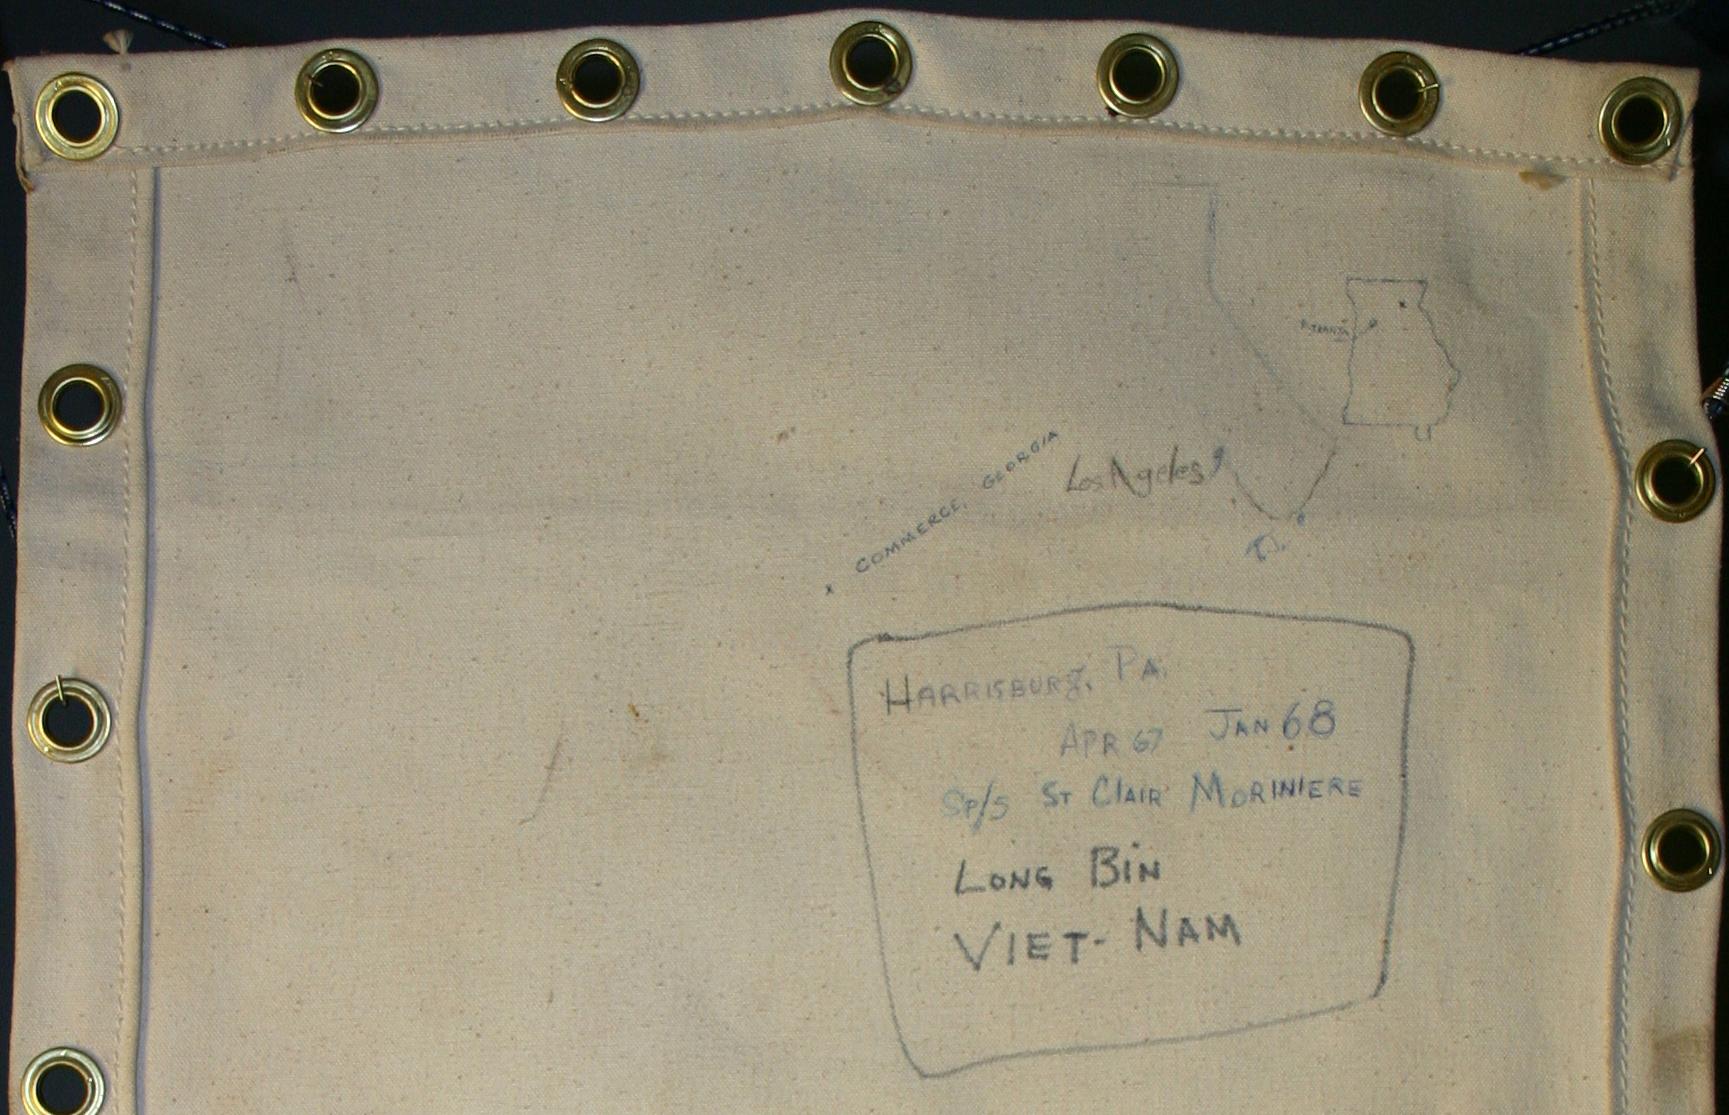 ATLANTA
COMMERCE, GEORGIA
Los Angeles
T.J.
HARRISBURG, PA.
APR 67 JAN 68
SP/5 ST CLAIR MORINIERE
LONG BIN
VIET-NAM